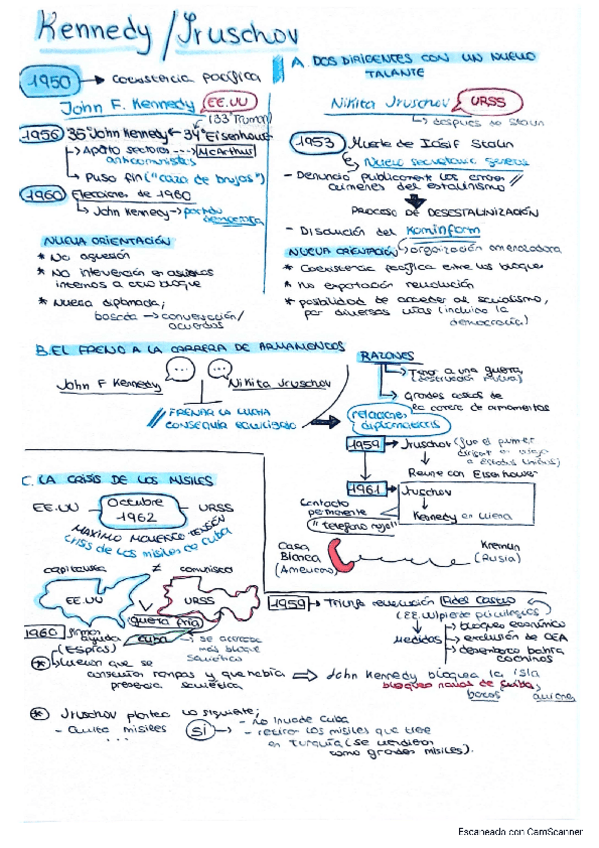 Kennedy / Jruschov
1950 → coexistencia pacífica
John F. Kennedy EE.UU
(33 Truman)
1956 35° John Kennedy ← 34° Eisenhower
↳ Apartó sectores --→ McArthur
anticomunistas
↳ Puso fin ("caza de brujas")
1960 Elecciones de 1960
↳ John Kennedy → partido
demócrata
NUEVA ORIENTACIÓN
* No agresión
* No intervención en asuntos
internos a otro bloque
* Nueva diplomacia;
basada → conversación/
acuerdos
A. DOS DIRIGENTES CON UN NUEVO
TALANTE
Nikita Jruschov URSS
↳ después de Stalin
1953 Muerte de Iósif Stalin
↳ Nuevo secretario general
- Denunció públicamente los errores
crímenes del estalinismo
PROCESO DE DESESTALINIZACIÓN
- Disolución del Kominform
↳ organización amenazadora
NUEVA ORIENTACIÓN
* Coexistencia pacífica entre los bloques
* No exportación revolución
* posibilidad de acceder al socialismo,
por diversas vías (incluido la
democracia)
B. EL FRENO A LA CARRERA DE ARMAMENTOS
John F Kennedy Nikita Jruschov
// FRENAR LA LUCHA
CONSEGUIR EQUILIBRIO
RAZONES
→ Temor a una guerra
(destrucción mutua)
→ Grandes costos de
la carrera de armamentos
relaciones
diplomáticas
1959 → Jruschov (fue el primer
dirigente en viajar
a Estados Unidos)
Reúne con Eisenhower
1961 → Jruschov
Kennedy en Viena
Contacto
permanente
"teléfono rojo"
Casa
Blanca
(Americano)
Kremlin
(Rusia)
C. LA CRISIS DE LOS MISILES
EE.UU Octubre
1962 URSS
MÁXIMO MOMENTO TENSIÓN
crisis de los misiles de Cuba
capitalista ≠ comunista
EE.UU URSS
guerra fría
Cuba → se acercase
más bloque
soviético
1960 firman
ayuda
(Espías)
1959 → Triunfa revolución Fidel Castro
Medidas → bloqueo económico
→ exclusión de OEA
→ desembarco bahía
cochinos
* vieron que se
construían rampas y que había ⇒ John Kennedy bloquea la isla
presencia soviética
bloqueo naval de Cuba,
barcos
* Jruschov plantea lo siguiente;
- Quita misiles
...
SI → - no invade Cuba
- retirar los misiles que tiene
en Turquía (se vendieron
como grandes misiles).
Escaneado con CamScanner